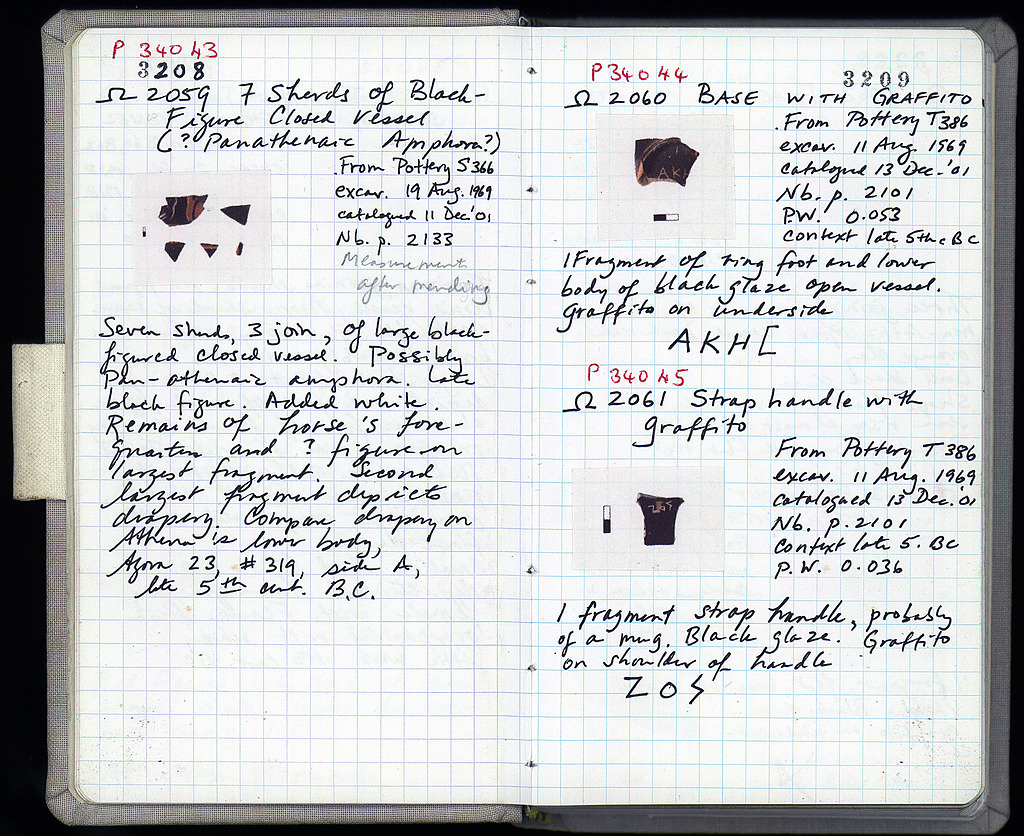 P 34043
3208
Ω 2059 7 Sherds of Black-
Figure Closed Vessel
(? Panathenaic Amphora?)
From Pottery S 366
excav. 19 Aug. 1969
catalogued 11 Dec '01
Nb. p. 2133
Measurement
after mending
Seven sherds, 3 join, of large black-
figured closed vessel. Possibly
Pan-athenaic amphora. Late
black figure. Added white.
Remains of horse's fore-
quarters and ? figure on
largest fragment. Second
largest fragment depicts
drapery. Compare drapery on
Athena's lower body,
Agora 23, #319, side A,
late 5th cent. B.C.
P34044
3209
Ω 2060 BASE WITH GRAFFITO
.From Pottery T386
excav. 11 Aug. 1969
catalogued 13 Dec. '01
Nb. p. 2101
P.W. 0.053
context late 5th c BC
AK
1 Fragment of ring foot and lower
body of black glaze open vessel.
Graffito on underside
AKH[
P 34045
Ω 2061 Strap handle with
graffito
From Pottery T 386
excav. 11 Aug. 1969
catalogued 13 Dec. '01
Nb. p. 2101
context late 5. BC
P.W. 0.036
1 fragment strap handle, probably
of a mug. Black glaze. Graffito
on shoulder of handle
ZOS